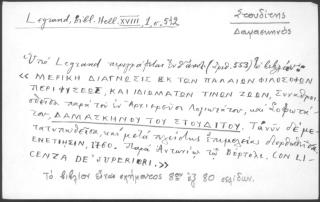 Legrand, Bibl. Hell. XVIII, 1, σ. 512
Στουδίτης
Δαμασκηνός
Ὑπὸ Legrand περιγράφεται ἐνθ' (ἀριθ. 553) βιβλίον:
« ΜΕΡΙΚΗ ΔΙΑΓΝΩΣΙΣ ΕΚ ΤΩΝ ΠΑΛΑΙΩΝ ΦΙΛΟΣΟΦΩΝ
ΠΕΡΙ ΦΥΣΕΩΣ, ΚΑΙ ΙΔΙΩΜΑΤΩΝ ΤΙΝΩΝ ΖΩΩΝ, Συναθροι
σθεῖσα παρὰ τοῦ ἐν Ἀρχιερεῦσι Λογιωτάτου, καὶ Σοφωτά
του, ΔΑΜΑΣΚΗΝΟΥ ΤΟΥ ΣΤΟΥΔΙΤΟΥ. Τανῦν δὲ με
τατυπωθεῖσα, καὶ μετὰ πλείστης ἐπιμελείας διορθωθεῖσα
ΕΝΕΤΙΗΣΙΝ, 1760. Παρὰ Ἀντωνίῳ τῷ Βόρτολι. CON LI-
CENZA DE' SUPERIORI. »
Τὸ βιβλίον εἶναι σχήματος 8ον ἐξ 80 σελίδων.